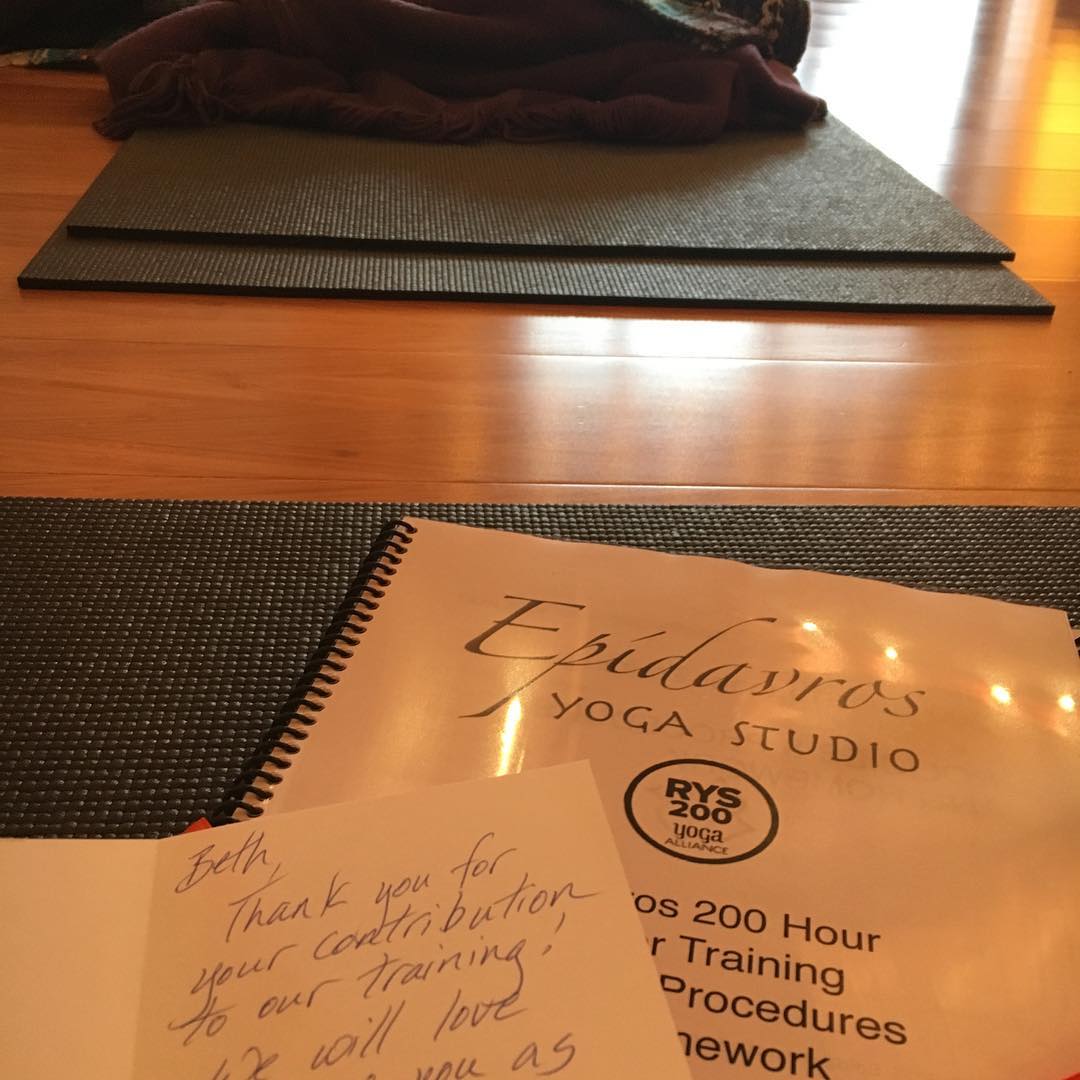 Epídavros
YOGA STUDIO
RYS
200
yoga
ALLIANCE
ros 200 Hour
r Training
Procedures
mework
Beth,
Thank you for
your contribution
to our training!
We will love
you as